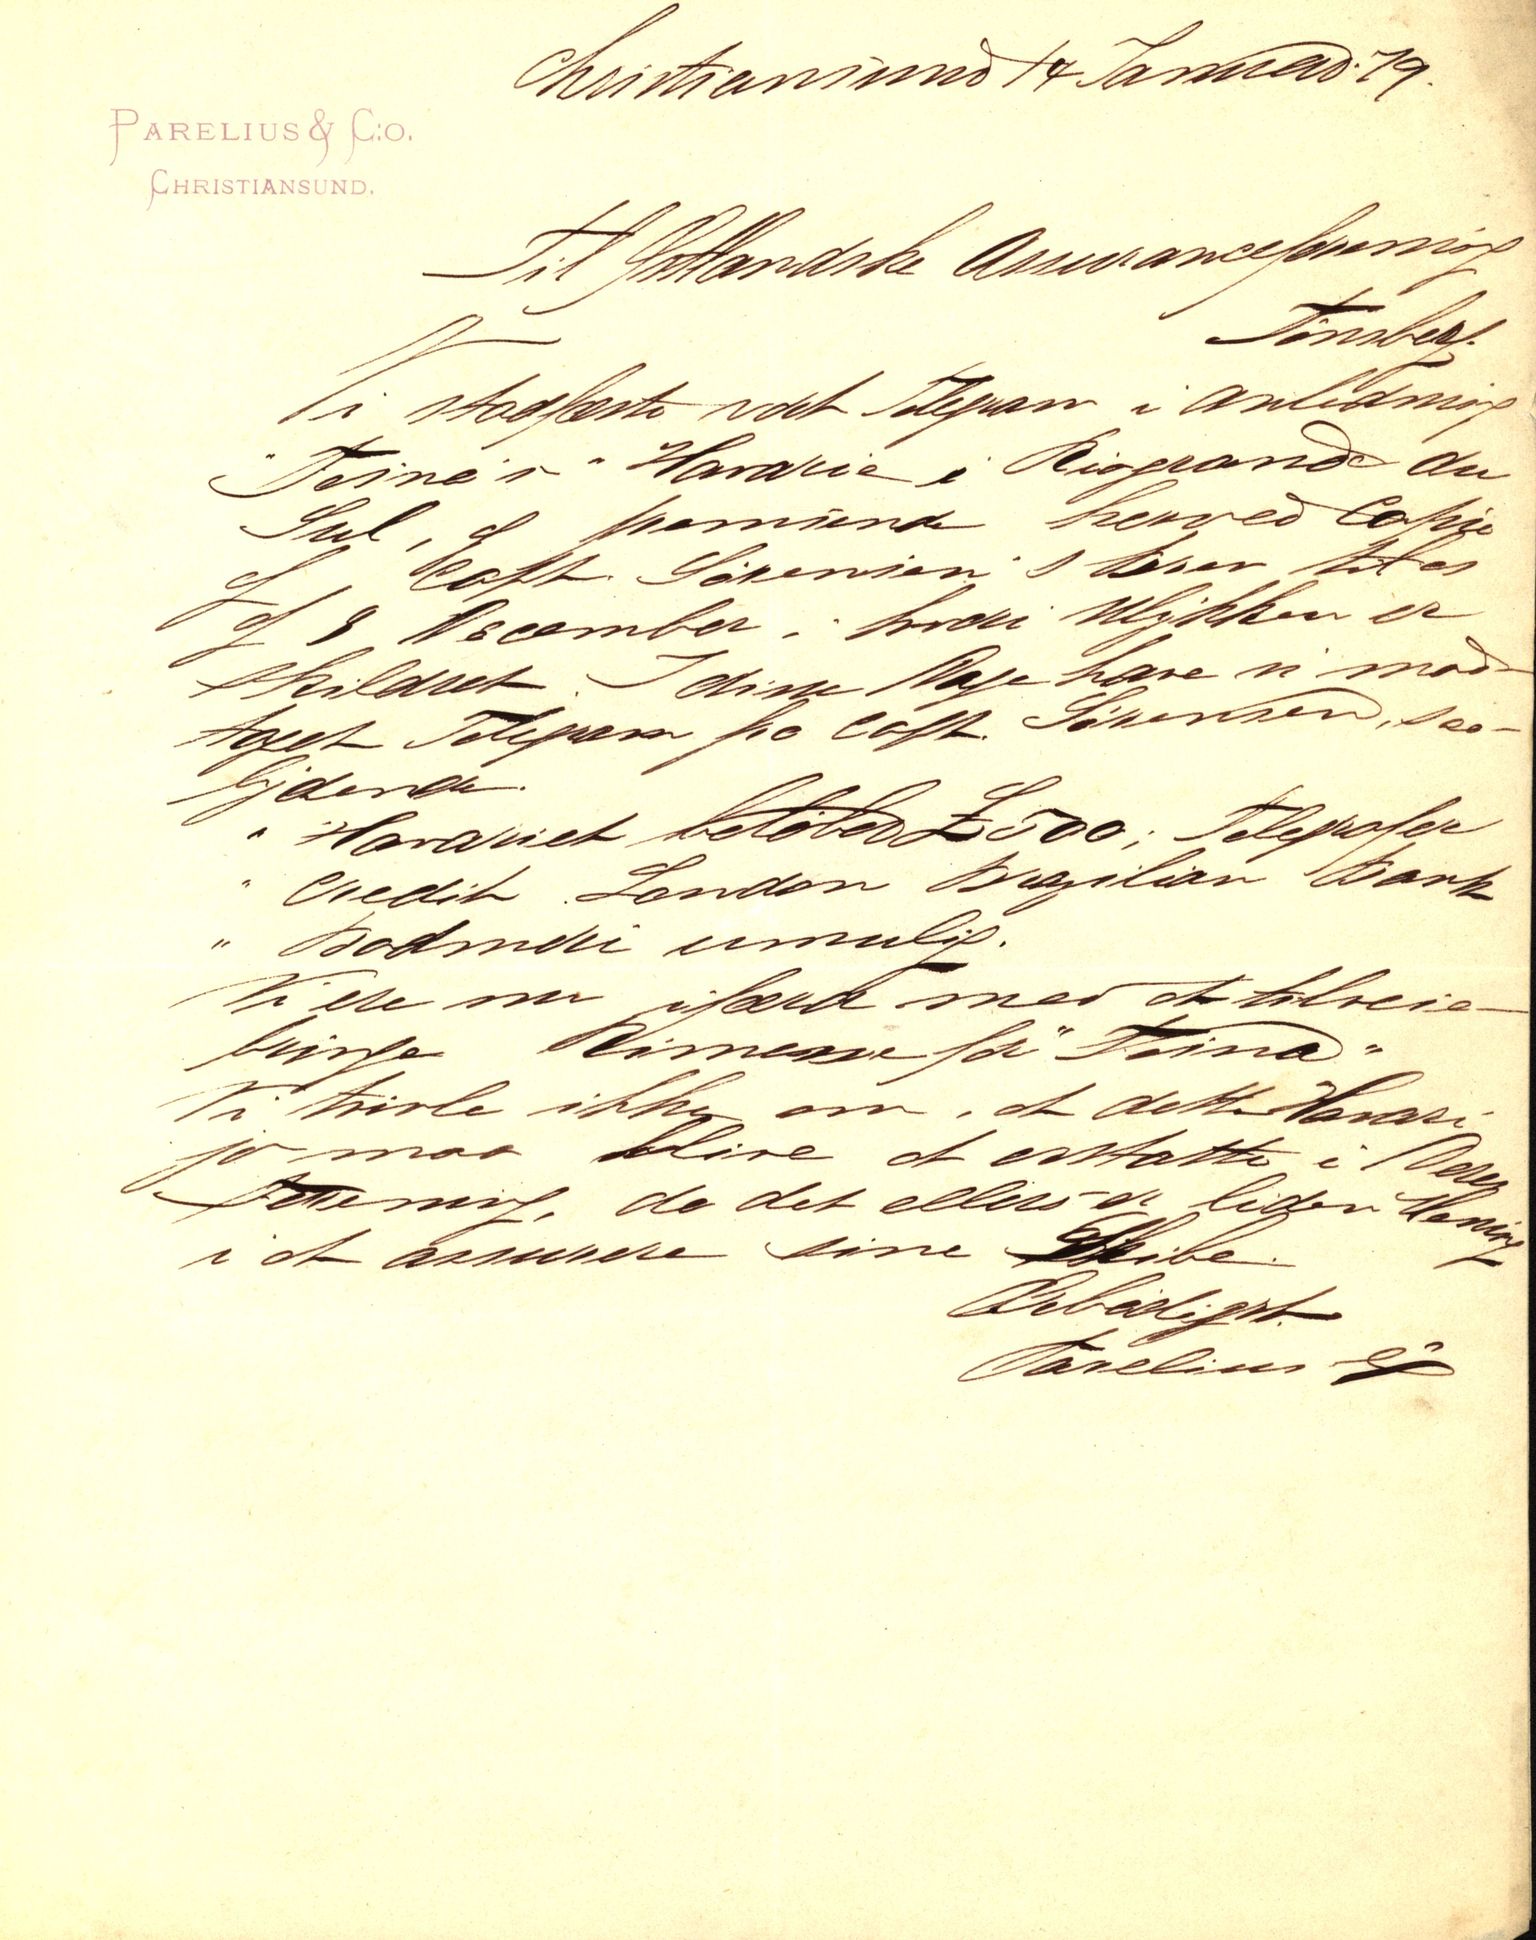 Christiansund 14 Januar 79.
PARELIUS & C:O.
CHRISTIANSUND.
Til Østlandske Assuranceforening
Tönsberg.
Vi stadfæste vort Telegram i Anledning
"Teina's" Havarie i Riogrande du
Sul, og fremsende herved Copie
af Capt. Sörensen's Brev til os
af 8 December, hvori Ulykken er
skildret. I disse Dage have vi mod-
taget Telegram fra Capt. Sörensen, saa-
lydende.
" Havariet beløber £500; Telegrafer
" Credit London Brazilian Bank
" Bodmeri umulig.
Vi ere nu ifærd med at tilveie-
bringe Rimesse for "Teina"
Vi tvivle ikke om, at dette Havari
jo maa blive at erstatte i Deres
Forening, da det ellers er liden Mening
i at assurere sine Skibe.
Ærbødigst
Parelius & Co